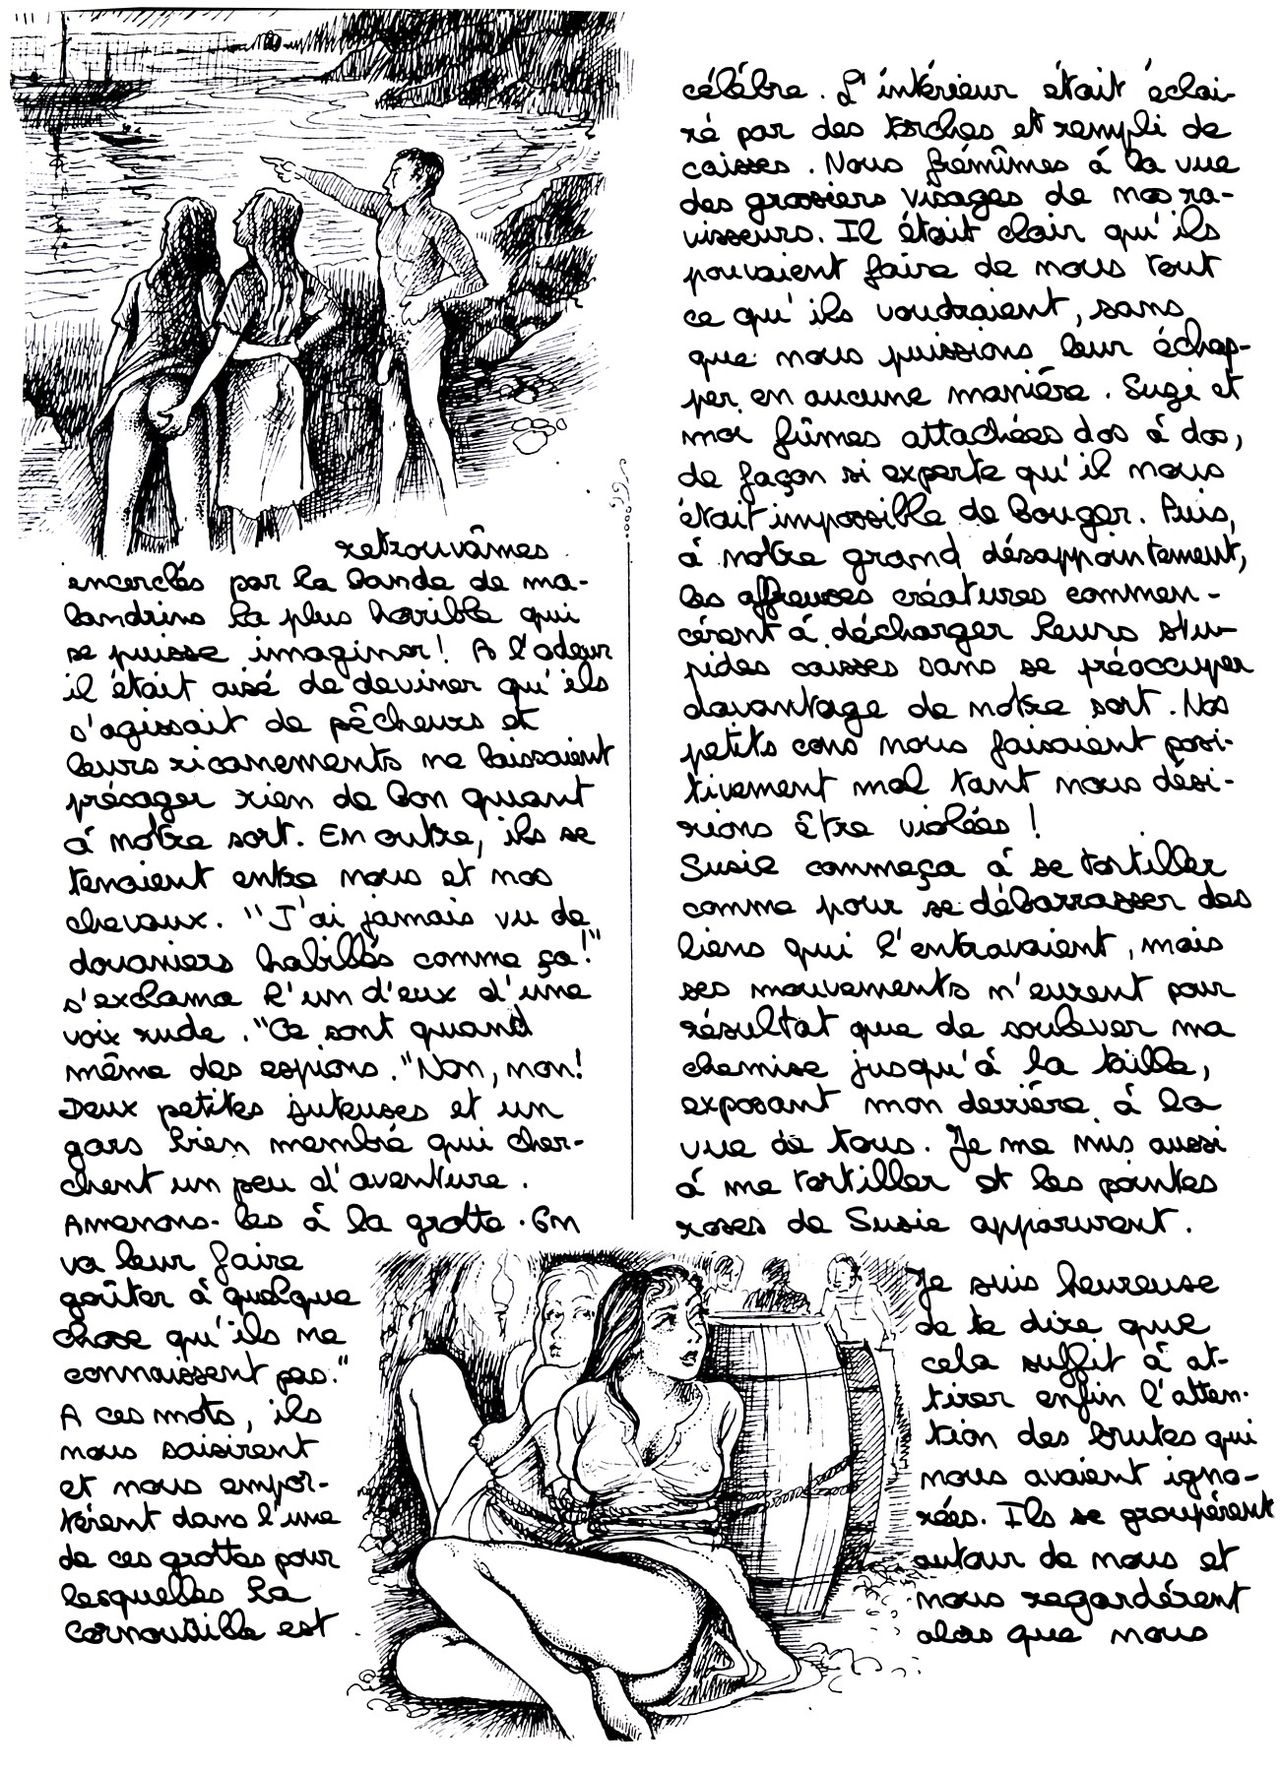 retrouvâmes
encerclés par la bande de ma-
landrins la plus horrible qui
se puisse imaginer! A l'odeur
il était aisé de deviner qu'ils
s'agissait de pêcheurs et
leurs ricanements ne laissaient
présager rien de bon quant
à notre sort. En outre, ils se
tenaient entre nous et nos
chevaux. "J'ai jamais vu de
douaniers habillés comme ça!"
s'exclama l'un d'eux d'une
voix rude. "Ce sont quand
même des espions." Non, non!
Deux petites juteuses et un
gars bien membré qui cher-
chent un peu d'aventure.
Amenons-les à la grotte. On
va leur faire
goûter à quelque
chose qu'ils ne
connaissent pas."
A ces mots, ils
nous saisirent
et nous empor-
tèrent dans l'une
de ces grottes pour
lesquelles la
Cornouaille est
célèbre. L'intérieur était éclai-
ré par des torches et rempli de
caisses. Nous frémîmes à la vue
des grossiers visages de nos ra-
visseurs. Il était clair qu'ils
pouvaient faire de nous tout
ce qu'ils voudraient, sans
que nous puissions leur échap-
per en aucune manière. Suzi et
moi fûmes attachées dos à dos,
de façon si experte qu'il nous
était impossible de bouger. Puis,
à notre grand désappointement,
les affreuses créatures commen-
cèrent à décharger leurs stu-
pides caisses sans se préoccuper
davantage de notre sort. Nos
petits cons nous faisaient posi-
tivement mal tant nous dési-
rions être violées!
Susie commeça à se tortiller
comme pour se débarrasser des
liens qui l'entravaient, mais
ses mouvements n'eurent pour
résultat que de soulever ma
chemise jusqu'à la taille,
exposant mon derrière à la
vue de tous. Je me mis aussi
à me tortiller et les pointes
roses de Susie apparurent.
Je suis heureuse
de te dire que
cela suffit à at-
tirer enfin l'atten-
tion des brutes qui
nous avaient igno-
rées. Ils se groupèrent
autour de nous et
nous regardèrent
alors que nous